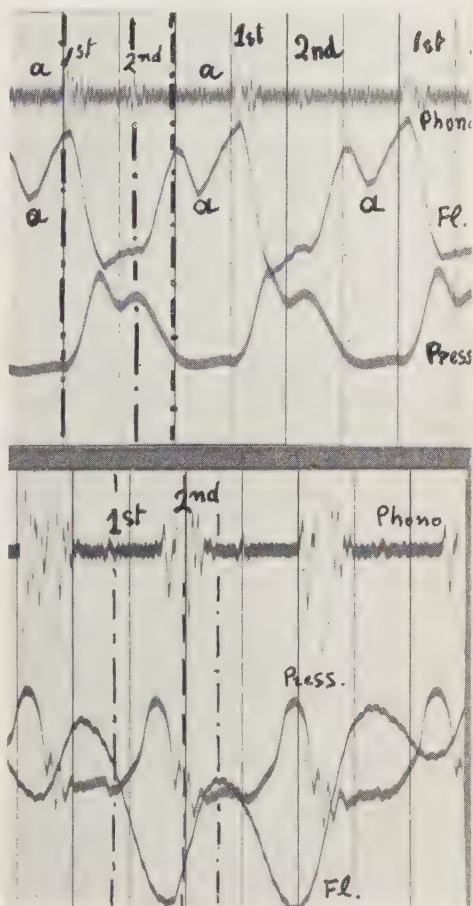 a 1st 2nd a 1st 2nd 1st
Phono
a a a
Fl.
Press
1st 2nd Phono
Press.
Fl.